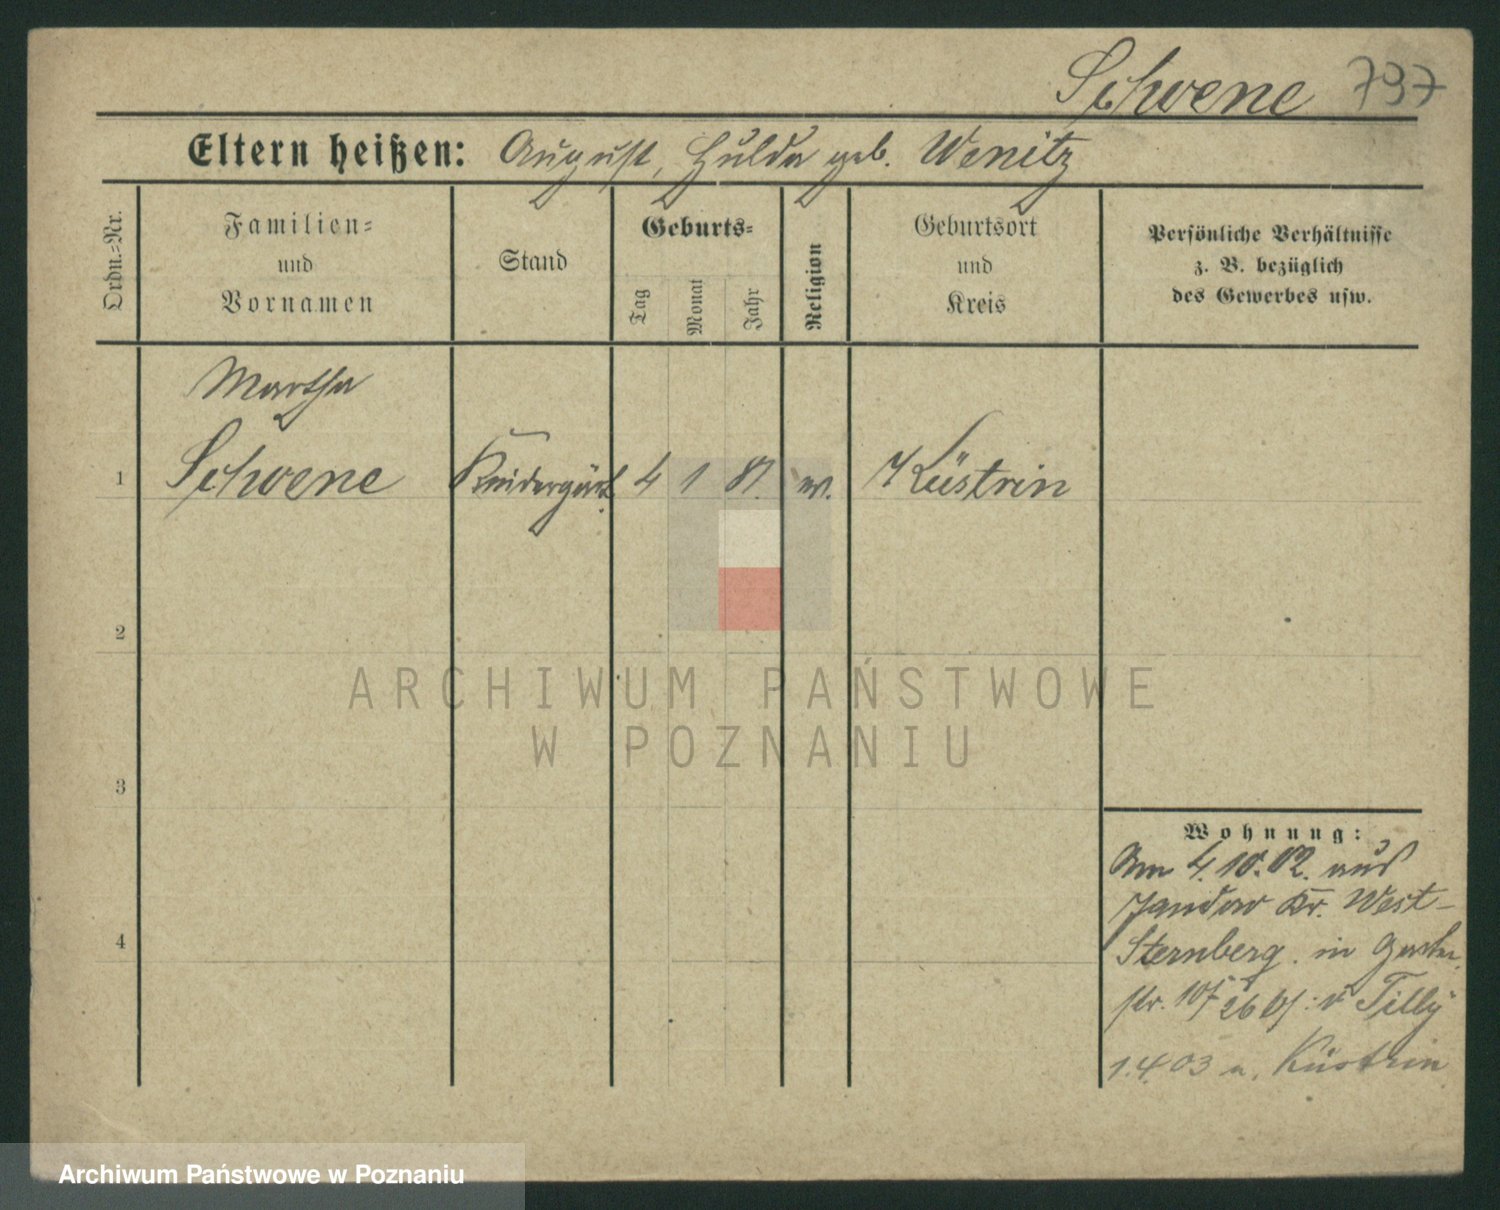 Schwene 797
Eltern heißen: August, Hulda geb. Wenitz
Ordn.-Nr.
Familien- und Vornamen
Stand
Geburts-
Tag
Monat
Jahr
Religion
Geburtsort und Kreis
Persönliche Verhältnisse
z. B. bezüglich
des Gewerbes usw.
Martha
1 Schwene Kindergärt. 4 1 81. ev. Küstrin
2
ARCHIWUM PAŃSTWOWE
W POZNANIU
3
Wohnung:
Am 4.10.02. aus
Kr. West-
4
Sternberg. in
str. 10 b/: Tilly
1.4.03 n. Küstrin
Archiwum Państwowe w Poznaniu